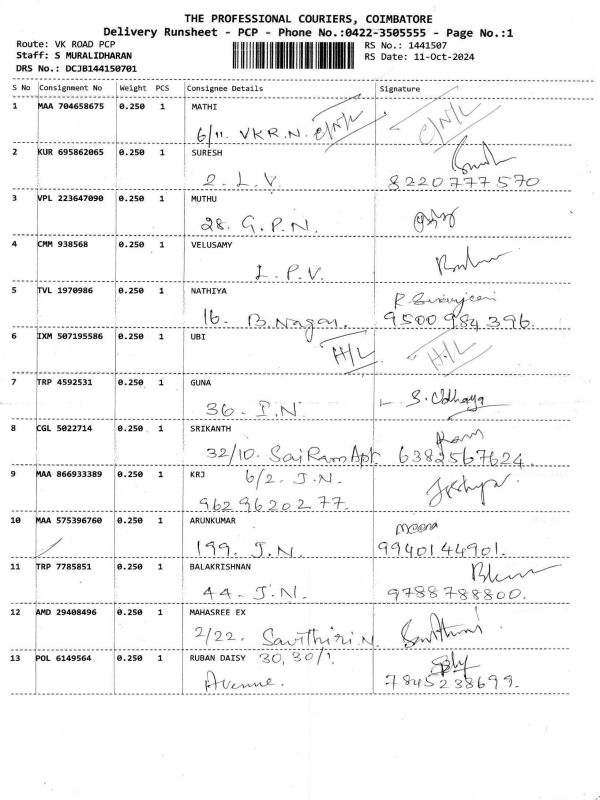 THE PROFESSIONAL COURIERS, COIMBATORE
Delivery Runsheet - PCP - Phone No.:0422-3505555 - Page No.:1
Route: VK ROAD PCP RS No.: 1441507
Staff: S MURALIDHARAN RS Date: 11-Oct-2024
DRS No.: DCJB144150701
S No Consignment No Weight PCS Consignee Details Signature
1 MAA 704658675 0.250 1 MATHI
6/11. V.K.R.N. C/N/L C/N/L
2 KUR 695862065 0.250 1 SURESH
2. L.V. 8220777570
3 VPL 223647090 0.250 1 MUTHU
28. G.P.N.
4 CMM 938568 0.250 1 VELUSAMY
L.P.V.
5 TVL 1970986 0.250 1 NATHIYA
16. B.Nagar. 9500984396.
6 IXM 507195586 0.250 1 UBI
H/L H/L
7 TRP 4592531 0.250 1 GUNA
36. I.N
8 CGL 5022714 0.250 1 SRIKANTH
32/10. SaiRam Apt. 6382567624.
9 MAA 866933389 0.250 1 KRJ 6/2. J.N.
9629620277.
10 MAA 575396760 0.250 1 ARUNKUMAR Meena
199. J.N. 9940144901.
11 TRP 7785851 0.250 1 BALAKRISHNAN
44. J.N. 9788788800.
12 AMD 29408496 0.250 1 MAHASREE EX
2/22. Savithiri N.
13 POL 6149564 0.250 1 RUBAN DAISY 30, 30/1.
Avenue. 7845238699.